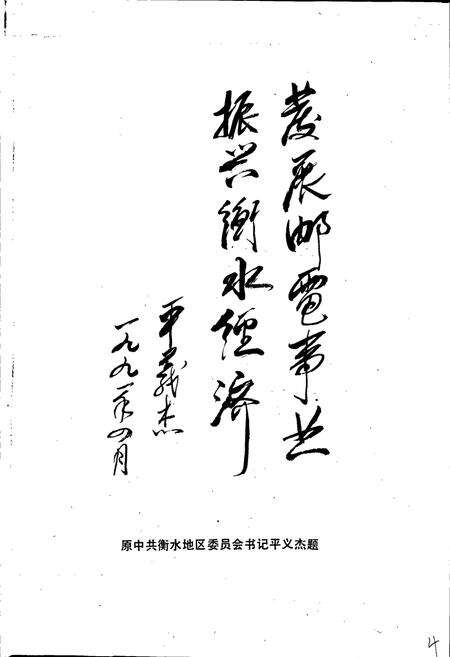 发展邮電事业
振兴衡水經济
平义杰
一九九一年四月
原中共衡水地区委员会书记平义杰题
4